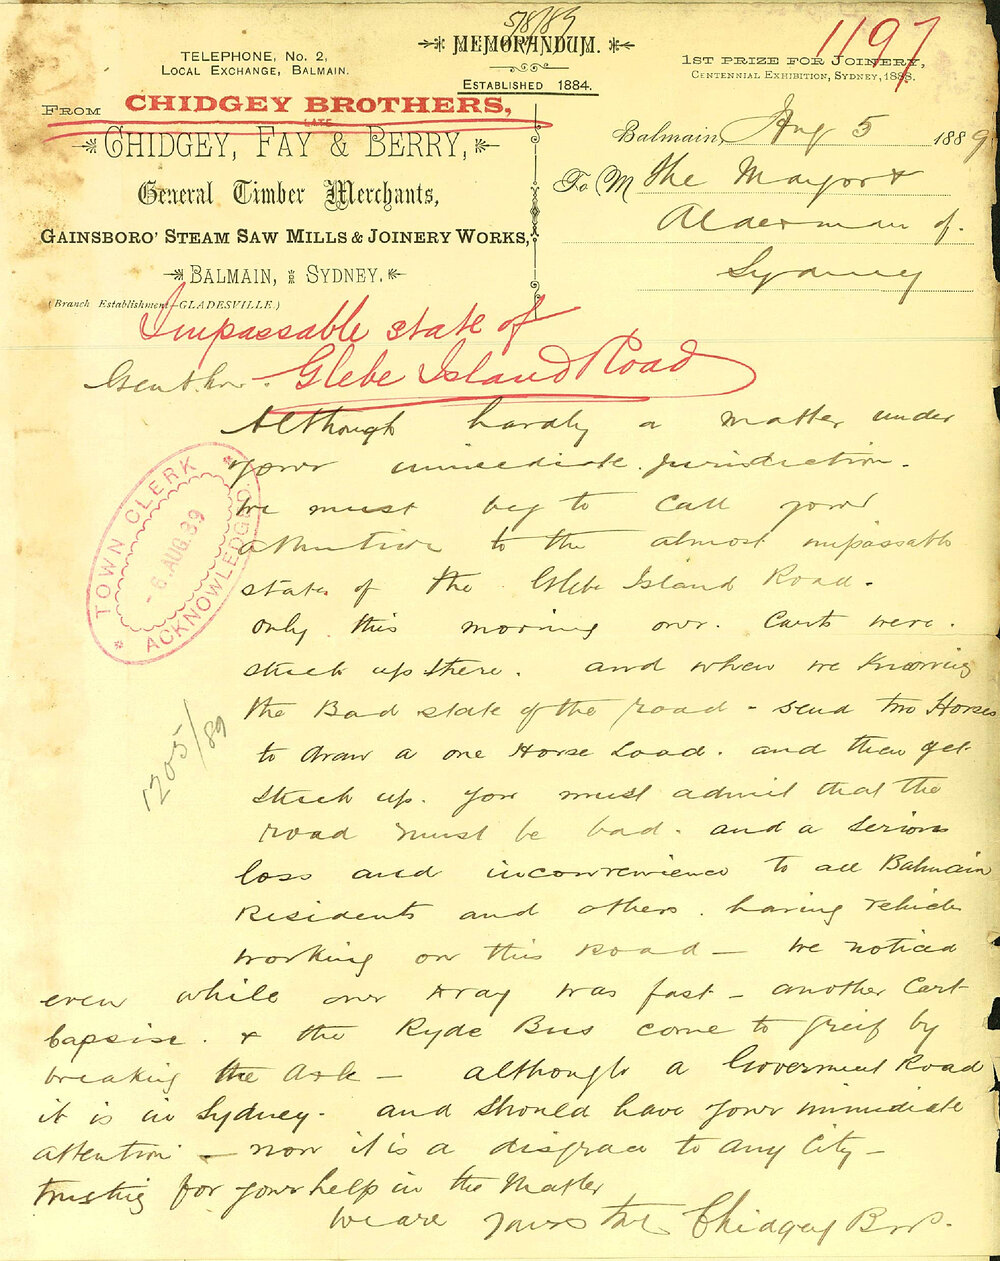 5/8/89
1197
TELEPHONE, No. 2,
LOCAL EXCHANGE, BALMAIN.
MEMORANDUM.
ESTABLISHED 1884.
1ST PRIZE FOR JOINERY,
CENTENNIAL EXHIBITION, SYDNEY, 1888.
FROM CHIDGEY BROTHERS,
LATE
CHIDGEY, FAY & BERRY,
General Timber Merchants,
GAINSBORO' STEAM SAW MILLS & JOINERY WORKS,
BALMAIN, SYDNEY.
(Branch Establishment—GLADESVILLE.)
Balmain, Aug 5 1889
To M the Mayor &
Alderman of.
Sydney
Impassable state of
Glebe Island Road
Gentlmn.
Although hardly a matter under
your immediate jurisdiction.
We must beg to call your
attention to the almost impassable
state of the Glebe Island Road.
Only this morning our Carts were.
stuck up there. and when we knowing
the Bad state of the road - send two Horses
to draw a one Horse Load. and then get
stuck up. you must admit that the
road must be bad. and a serious
loss and inconvenience to all Balmain
Residents and others. having vehicles
working on this road — We noticed
even while our dray was fast — another Cart
capsise. & the Ryde Bus come to greif by
breaking the axle — although a Goverment Road
it is in Sydney. and should have your immediate
attention — now it is a disgrace to any City —
trusting for your help in the Matter
We are yours Chidgey Bros.
TOWN CLERK
6. AUG. 89
ACKNOWLEDGED.
1205/89